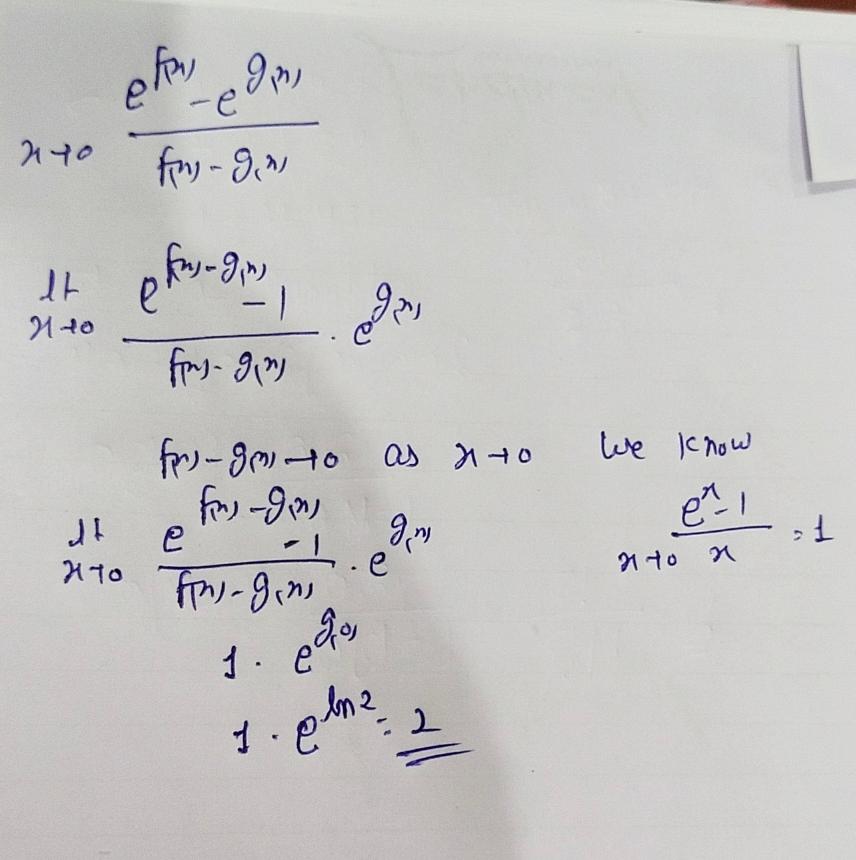 x→0 (e^{f(x)} - e^{g(x)}) / (f(x) - g(x))
lt x→0 (e^{f(x) - g(x)} - 1) / (f(x) - g(x)) . e^{g(x)}
f(x) - g(x) → 0 as x→0 We know
lt x→0 (e^{f(x) - g(x)} - 1) / (f(x) - g(x)) . e^{g(x)}
x→0 (e^x - 1) / x = 1
1 . e^{g(0)}
1 . e^{ln2} = 2